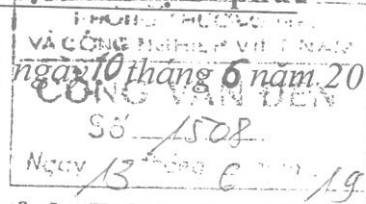 PHÒNG THƯƠNG MẠI
VÀ CÔNG NGHIỆP VIỆT NAM
ngày 10 tháng 6 năm 20
CÔNG VĂN ĐẾN
Số 1508
Ngày 13 tháng 6 19